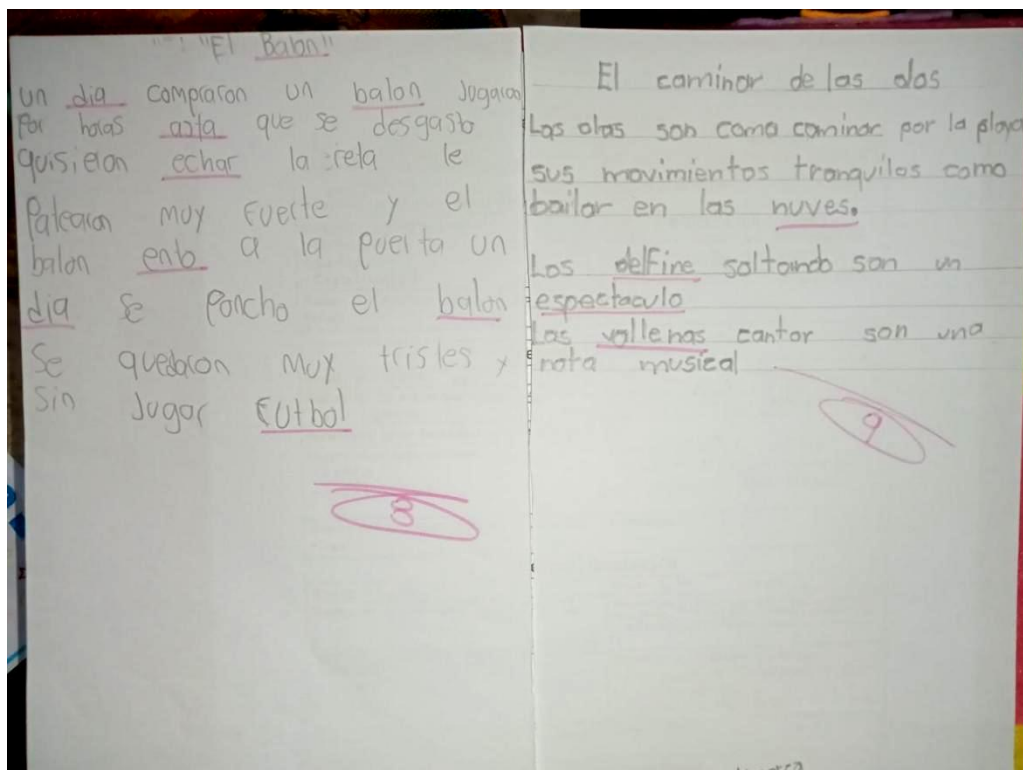 "El Balon"
un dia compraron un balon Jugaron
Por horas asta que se desgasto
quisieron echar la reta le
Patearon muy Fuerte y el
balon ento a la puerta un
dia se Poncho el balon
Se quedaron muy tristes y
Sin Jugar Futbol
8
El caminar de las olas
Las olas son como caminar por la playa
sus movimientos tranquilos como
bailar en las nuves.
Los delfine saltando son un
espectaculo
Las vallenas cantar son una
nota musical
9